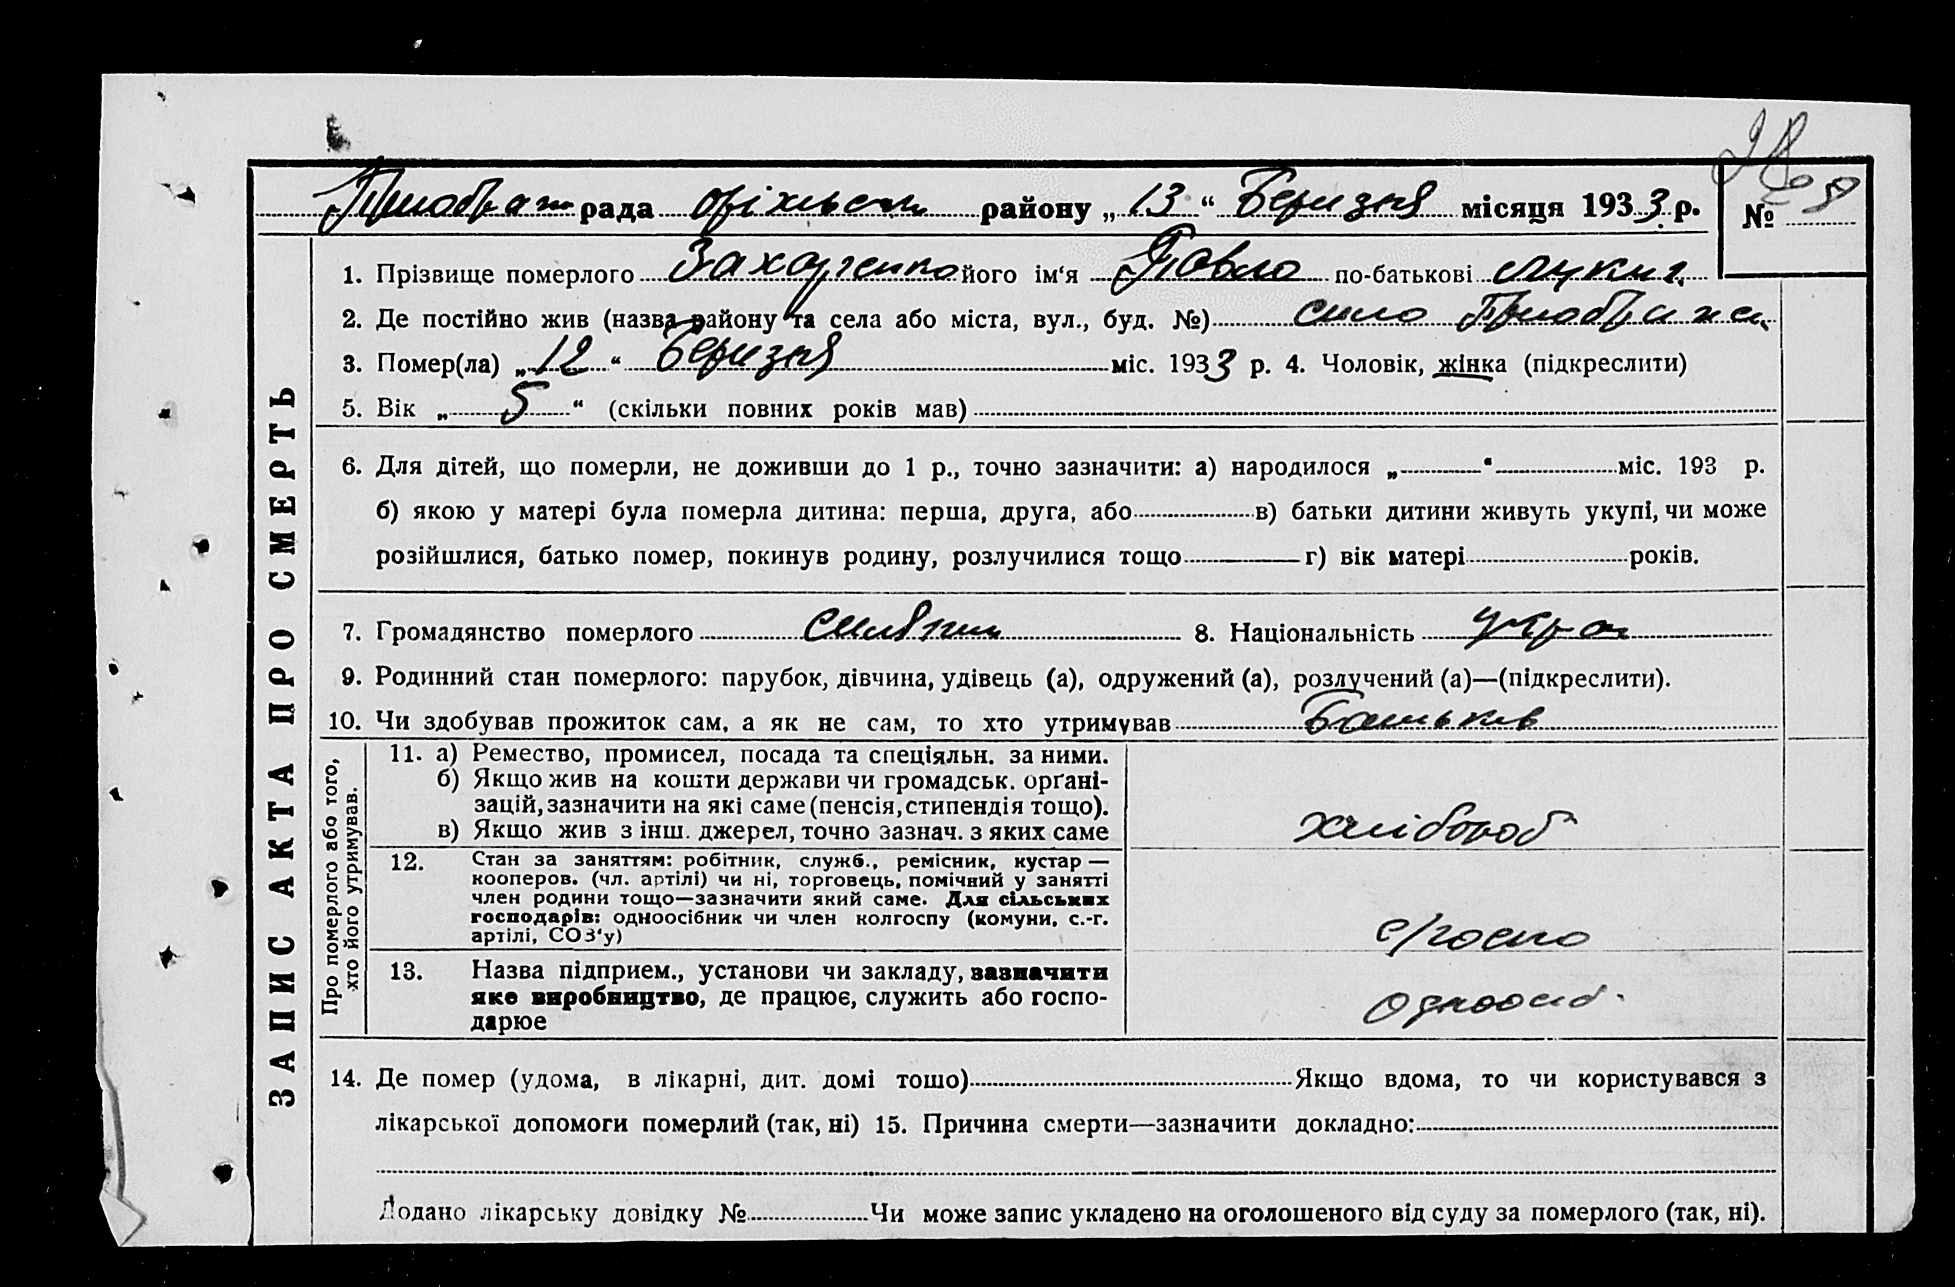 Преображен рада оріхівськ району „13“ Березня місяця 1933 р. №
ЗАПИС АКТА ПРО СМЕРТЬ
1. Прізвище померлого Захарченко його ім‘я Павло по-батькові Лукич
2. Де постійно жив (назва району та села або міста, вул., буд. №) село
3. Помер(ла) „12“ Березня міс. 1933 р. 4. Чоловік, жінка (підкреслити)
5. Вік „5“ (скільки повних років мав)
6. Для дітей, що померли, не доживши до 1 р., точно зазначити: а) народилося „ “ міс. 193 р.
б) якою у матері була померла дитина: перша, друга, або в) батьки дитини живуть укупі, чи може
розійшлися, батько помер, покинув родину, розлучилися тощо г) вік матері років.
7. Громадянство померлого 8. Національність укра
9. Родинний стан померлого: парубок, дівчина, удівець (а), одружений (а), розлучений (а)—(підкреслити).
10. Чи здобував прожиток сам, а як не сам, то хто утримував Батьків
Про померлого або того,
хто його утримував.
11. а) Ремество, промисел, посада та спеціяльн. за ними.
б) Якщо жив на кошти держави чи громадськ. орґані-
зацій, зазначити на які саме (пенсія, стипендія тощо).
в) Якщо жив з інш. джерел, точно зазнач. з яких саме
хлібороб
12. Стан за заняттям: робітник, служб., ремісник, кустар —
кооперов. (чл. артілі) чи ні, торговець, помічний у занятті
член родини тощо—зазначити який саме. Для сільських
господарів: одноосібник чи член колгоспу (комуни, с.-г.
артілі, СОЗ‘у)
с/госпо
13. Назва підприєм., установи чи закладу, зазначити
яке виробництво, де працює, служить або госпо-
дарює
Одноосіб.
14. Де помер (удома, в лікарні, дит. домі тощо) Якщо вдома, то чи користувався з
лікарської допомоги померлий (так, ні) 15. Причина смерти—зазначити докладно:
Додано лікарську довідку № Чи може запис укладено на оголошеного від суду за померлого (так, ні).